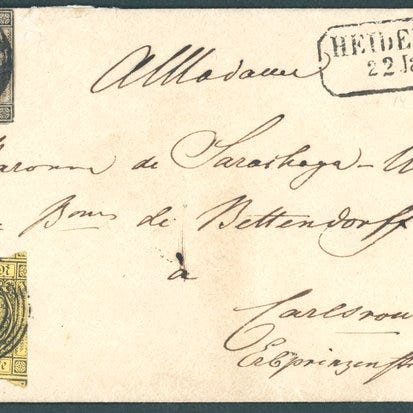 HEIDE
22 Ja
A Madame
Baronne de Sarachaga-U
Bonne de Bettendorff
à
Carlsrou
Erbprinzenst